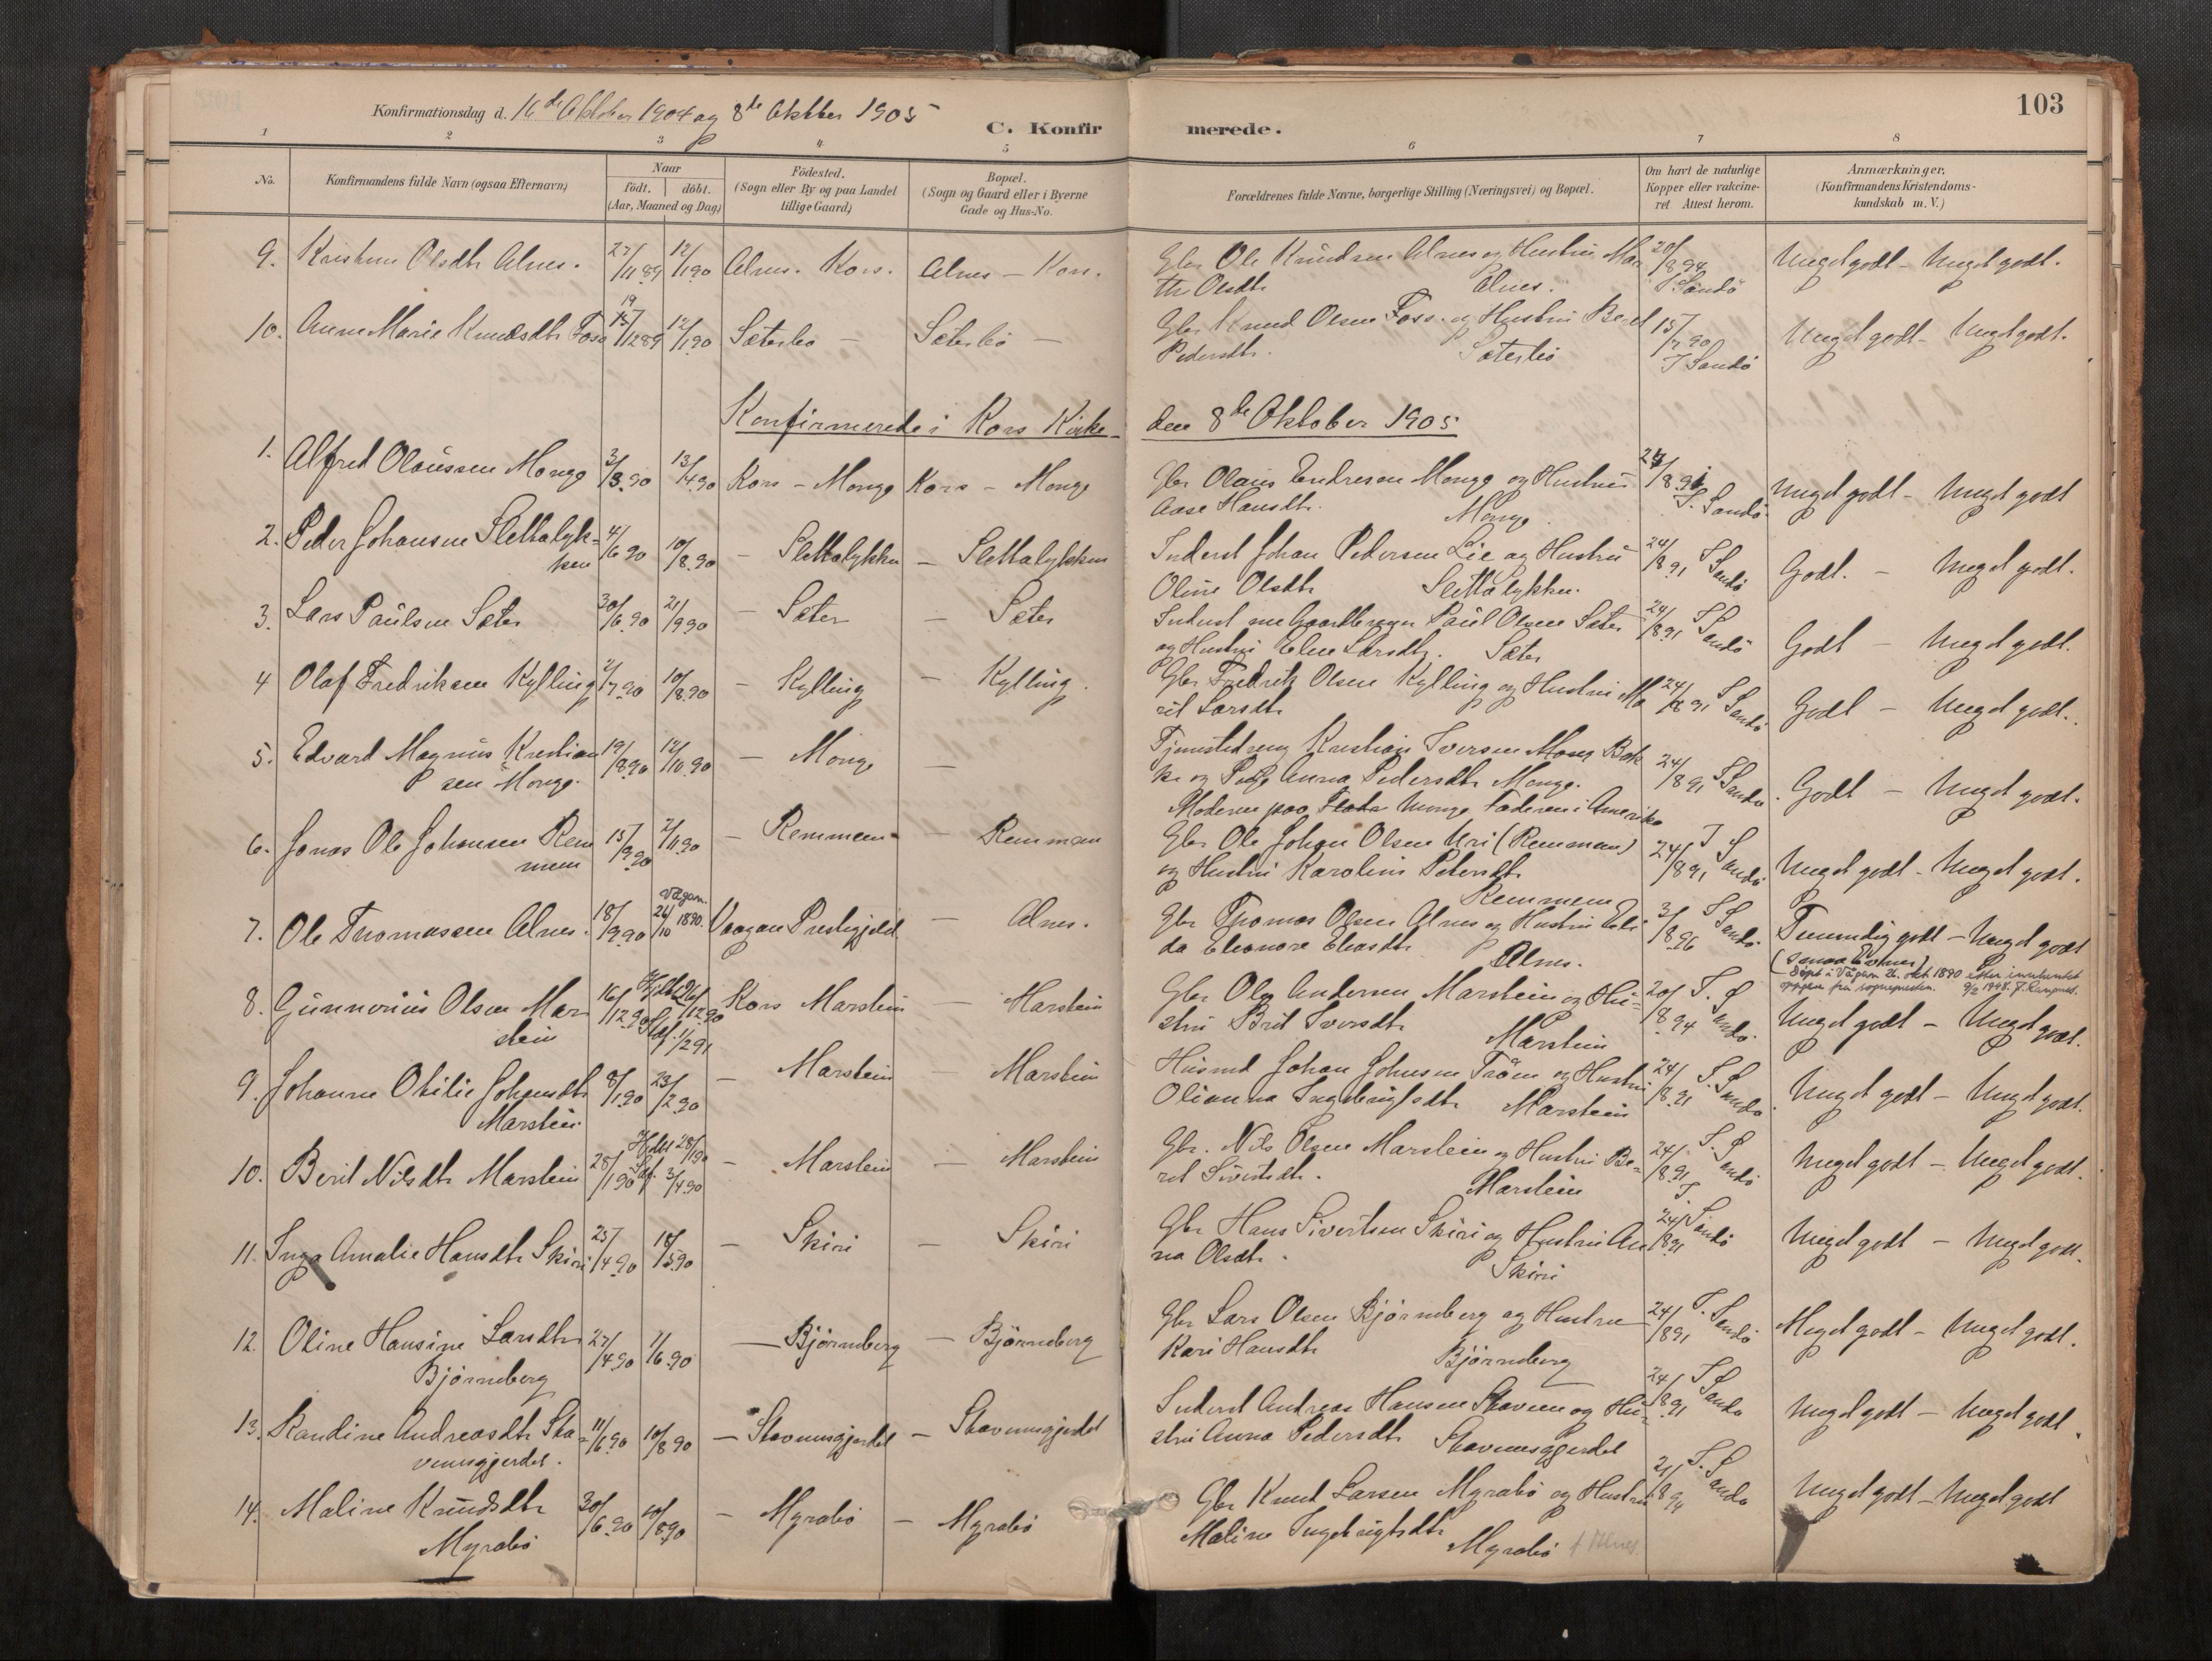 103
Konfirmationsdag d. 16de Oktober 1904 og 8de Oktber 1905
C. Konfirmerede.
1 2 3 4 5 6 7 8
No.
Konfirmandens fulde Navn (ogsaa Efternavn)
Naar
födt. döbt.
(Aar, Maaned og Dag)
Födested.
(Sogn eller By og paa Landet
tillige Gaard)
Bopæl.
(Sogn og Gaard eller i Byerne
Gade og Hus-No.
Forældrenes fulde Navne, borgerlige Stilling (Næringsvei) og Bopæl.
Om havt de naturlige
Kopper eller vakcine-
ret Attest herom.
Anmærkninger.
(Konfirmandens Kristendoms-
kundskab m. V.)
9. Olsdtr Alnes. 27/11 89 12/1 90 Alnes. Kors. Alnes - Kors. Gbr Ole Knudsen Alnes og Hustru Mar 20/8 94 Meget godt - Meget godt.
the Olsdtr Alnes. Sandö
10. Anne Marie Knudsdtr Foss 19/12 89 12/1 90 Sæterbö - Sæterbö - Gbr Knud Olsen Foss og Hustru Beret 15/7 90 Meget godt - Meget godt.
Pedersdtr. Sæterbö T Sandö
Konfirmerede i Kors Kirke den 8de Oktober 1905
1. Alfred Olaüssen Monge 3/3 90 13/4 90 Kors - Monge Kors - Monge Gbr Olaüs Endresen Monge og Hustru 24/8 91 Meget godt - Meget godt
Aase Hansdtr. Monge. T. Sandö
2. Peder Johansen Slettalyk- 4/6 90 10/8 90 - Slettalykken - Slettalykken Inderst Johan Pedersen Lie og Hustru 24/8 91 T Sandö Godt. - Meget godt.
ken Oline Olsdtr Slettalykken.
3. Lars Paülsen Sæter 30/6 90 21/9 90 - Sæter - Sæter Inderst Paül Olsen Sæter 24/8 91 T Sandö Godt - Meget godt.
og Hustru Elen Larsdtr. Sæter
4 Olaf Fredriksen Kylling 2/7 90 10/8 90 - Kylling - Kylling. Gbr Fredrik Olsen Kylling og Hustru Ma 24/8 91 T Sandö Godt - Meget godt.
rit Larsdtr
5. Edvard Magnüs Kristian 19/8 90 12/10 90 - Monge - Tjenestedreng Kristian Iversen Bak 24/8 91 T Sandö Godt - Meget godt.
sen Monge. ke og Pige Anna Pedersdtr Monge.
Moderen paa Monge Faderen i Amerika
6. Jonas Ole Johansen Rem 15/9 90 2/11 90 - Remmem - Remmem Gbr Ole Johan Olsen Uri (Remmem) 24/8 91 T Sandö Meget godt - Meget godt.
mem og Hustru Karoline Petersdtr
Remmem
7. Ole Thomassen Alnes. 18/9 90 Vågan. 26/10 1890. Vaagan Prestegjeld - Alnes. Gbr Thomas Olsen Alnes og Hustru 3/8 96 T Sandö Temmelig godt - Meget godt
da Eleonore Eliasdtr Alnes.
Döpt i Vågan 26. okt 1890 etter innhentet
oppgave fra sognepresten. 9/2 1948.
8. Günnerius Olsen Mar 16/12 90 Hjdbt 26/12 90 Kors Marstein - Marstein Gbr Ole Andersen Marstein og Hu- 20/8 94 T. Sandö Meget godt - Meget godt.
stein Staf. 1/2 91 stru Brit Iversdtr Marstein
9. Johanne Otilie Johansdtr 8/1 90 23/2 90 - Marstein - Marstein Husmd Johan Johnsen Tröen og Hustru 24/8 91 T. Sandö Meget godt - Meget godt.
Marstein Olianna Ingebrigtsdtr Marstein
10. Berit Nilsdtr Marstein 28/1 90 Hjdbt 28/1 90 Staf. 3/4 90 - Marstein - Marstein Gbr. Nils Olsen Marstein og Hustru Be- 24/8 91 T. Sandö Meget godt - Meget godt.
ret Sivertsdtr. Marstein
11. Inga Amalie Hansdtr Skiri 25/4 90 18/5 90 - Skiri - Skiri Gbr Hans Sivertsen Skiri og Hustru An 24/8 91 T. Sandö Meget godt - Meget godt.
na Olsdtr. Skiri
12. Oline Hansine Larsdtr 27/4 90 1/6 90 - Björneberg - Björneberg Gbr Lars Olsen Björneberg og Hustru 24/8 91 T. Sandö Meget godt - Meget godt.
Björneberg Kari Hansdtr Björneberg
13. Randine Andreasdtr Sta- 11/6 90 10/8 90 - Stavemsgjerdet - Stavemsgjerdet Inderst Andreas Hansen Stavem og Hu- 24/8 91 T Sandö Meget godt - Meget godt.
vemsgjerdet. stru Anna Pedersdtr Stavemsgjerdet
14. Maline Knüdsdtr 30/6 90 10/8 90 - Myrabö - Myrabö Gbr Knut Larsen Myrabö og Hustru 21/8 94 T. Sandö Meget godt - Meget godt
Myrabö Maline Ingebrigtsdtr Myrabö